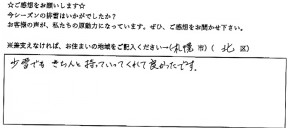 ☆ご感想をお願いします☆
今シーズンの排雪はいかがでしたか?
お客様の声が、私たちの原動力になっています。ぜひ、ご感想をお聞かせ下さい。
※差支えなければ、お住まいの地域をご記入ください→(札幌市)(北区)
少雪でも きちんと 持っていってくれて良かったです。